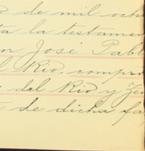 de mil och
ta la testamen
on José Pabl
l Rio, compro
del Rio y
se dicha fa